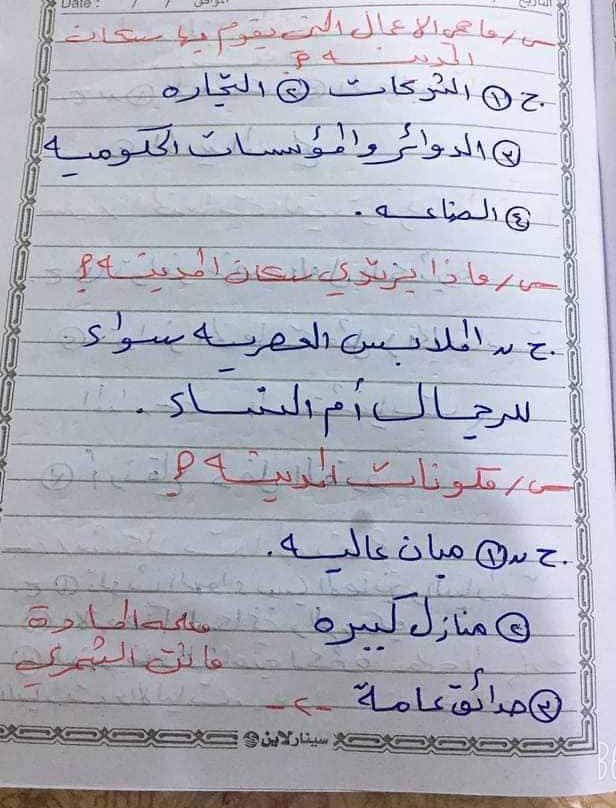 Date : / / الموافق / / التاريخ
س/ ما هي الاعمال التي يقوم بها سكان
المدينة ؟
ج ① الشركات ② التجاره
③ الدوائر والمؤسسات الحكوميه
④ الصناعه .
س/ ماذا يرتدي سكان المدينة ؟
ج // الملابس العصريه سواء
للرجال أم النساء .
س/ مكونات المدينة ؟
ج // ① مبان عاليه .
② منازل كبيره
معلمه المادة
فاتن الشمري
③ حدائق عامة
-٢-
سينارلاين